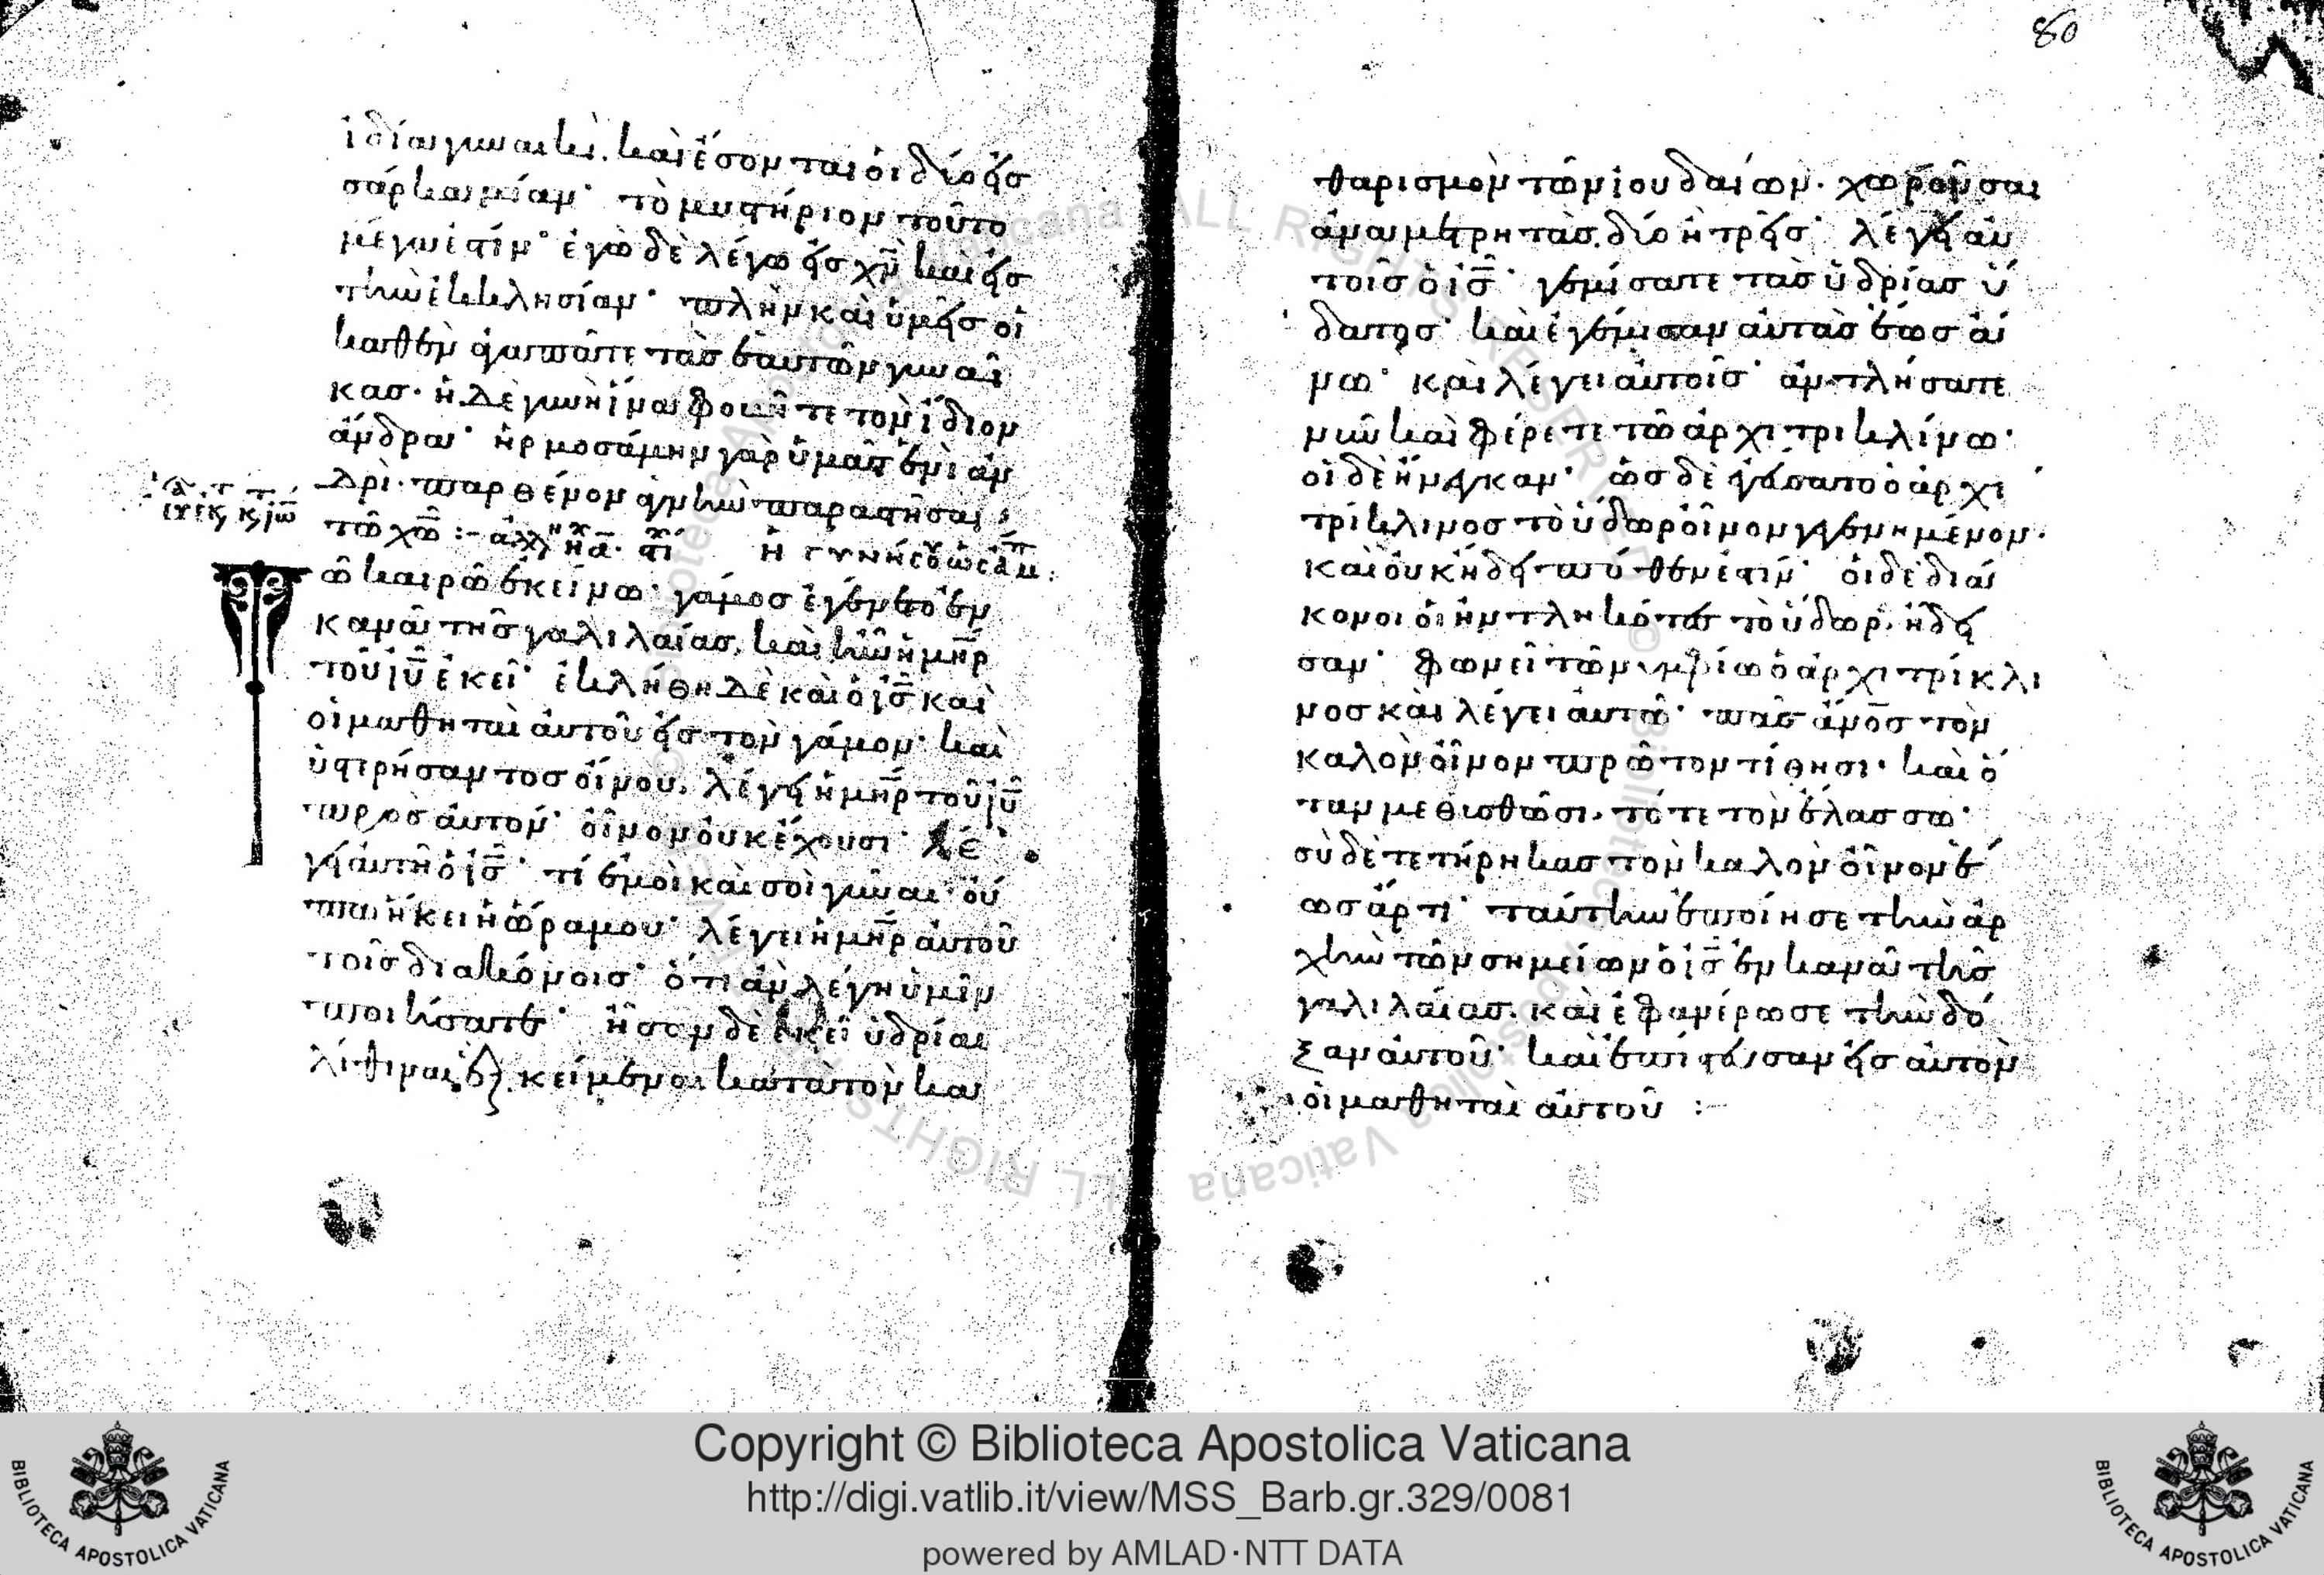 ἰδία γυναικὶ. καὶ ἔσονται οἱ δύο εἰς
σάρκα μίαν· τὸ μυστήριον τοῦτο
μέγα ἐστίν· ἐγὼ δὲ λέγω εἰς χν̅ καὶ εἰς
τὴν ἐκκλησίαν· πλὴν καὶ ὑμεῖς οἱ
καθεν ἀγαπᾶτε τὰς ἑαυτῶν γυναῖ
κας· ἡ δὲ γυνὴ ἵνα φοβῆτε τὸν ἴδιον
ἄνδρα· ἡρμοσάμην γὰρ ὑμᾶς ἑνὶ ἀν
δρὶ· παρθένον ἁγνὴν παραστῆσαι
τῶ χω̅ :-
Ἡ γυνή σου ὡς ἄμπ:
ῶ καιρῶ ἐκείνω· γάμος ἐγένετο ἐν
κανᾶ τῆς γαλιλαίας. καὶ ἦν ἡ μη̅ρ
τοῦ ιυ̅ ἐκεῖ· ἐκλήθη δὲ καὶ ὁ ις̅ καὶ
οἱ μαθηταὶ αὐτοῦ εἰς τὸν γάμον· καὶ
ὑστρήσαντος οἴνου. λέγει ἡ μη̅ρ τοῦ ιυ̅
πρὸς αὐτόν· οἶνον οὐκ ἔχουσι· λέ
γει αὐτῆ ὁ ις̅· τί ἐμοὶ καὶ σοὶ γύναι· οὔ
πω ἥκει ἡ ὥρα μου· λέγει ἡ μη̅ρ αὐτοῦ
τοῖς διακόνοις· ὅτι ἂν λέγη ὑμῖν
ποιήσατε· ἦσαν δὲ ἐκεῖ ὑδρίαι
λίθιναι ἓξ. κείμεναι κατὰ τὸν κα
80
θαρισμὸν τῶν ἰουδαίων. χωροῦσαι
ἀνα μετρητὰς. δύο ἢ τρεῖς· λέγει αὐ
τοῖς ὁ ις̅· γεμίσατε τὰς ὑδρίας ὕ
δατος· καὶ ἐγέμισαν αὐτὰς ἕως ἄ
νω· καὶ λέγει αὐτοῖς· ἀντλήσατε
νῦν καὶ φέρετε τῶ ἀρχιτρικλίνω·
οἱ δὲ ἤνεγκαν· ὡς δὲ ἐγεύσατο ὁ ἀρχι
τρίκλινος τὸ ὕδωρ οἶνον γεγενημένον·
καὶ οὐκ ἤδει πόθεν ἐστίν· οἱ δὲ διά
κονοι οἱ ἠντληκότες τὸ ὕδωρ. ἤδει
σαν· φωνεῖ τὸν νυμφίον ὁ ἀρχιτρίκλι
νος καὶ λέγει αὐτῶ· πᾶς ἄνο̅ς τὸν
καλὸν οἶνον πρῶτον τίθησι· καὶ ὅ
ταν μεθισθῶσι. τότε τὸν ἐλάσσω·
σὺ δὲ τετήρηκας τὸν καλὸν οἶνον ἕ
ως ἄρτι· ταύτην ἐποίησε τὴν ἀρ
χὴν τῶν σημείων ὁ ις̅ ἐν κανᾶ τῆς
γαλιλαίας. καὶ ἐφανέρωσε τὴν δό
ξαν αὐτοῦ· καὶ ἐπίστευσαν εἰς αὐτὸν
οἱ μαθηταὶ αὐτοῦ :-
ALL RIGHTS RESERVED © Biblioteca Apostolica Vaticana
Copyright © Biblioteca Apostolica Vaticana
http://digi.vatlib.it/view/MSS_Barb.gr.329/0081
powered by AMLAD·NTT DATA
BIBLIOTECA APOSTOLICA VATICANA
BIBLIOTECA APOSTOLICA VATICANA